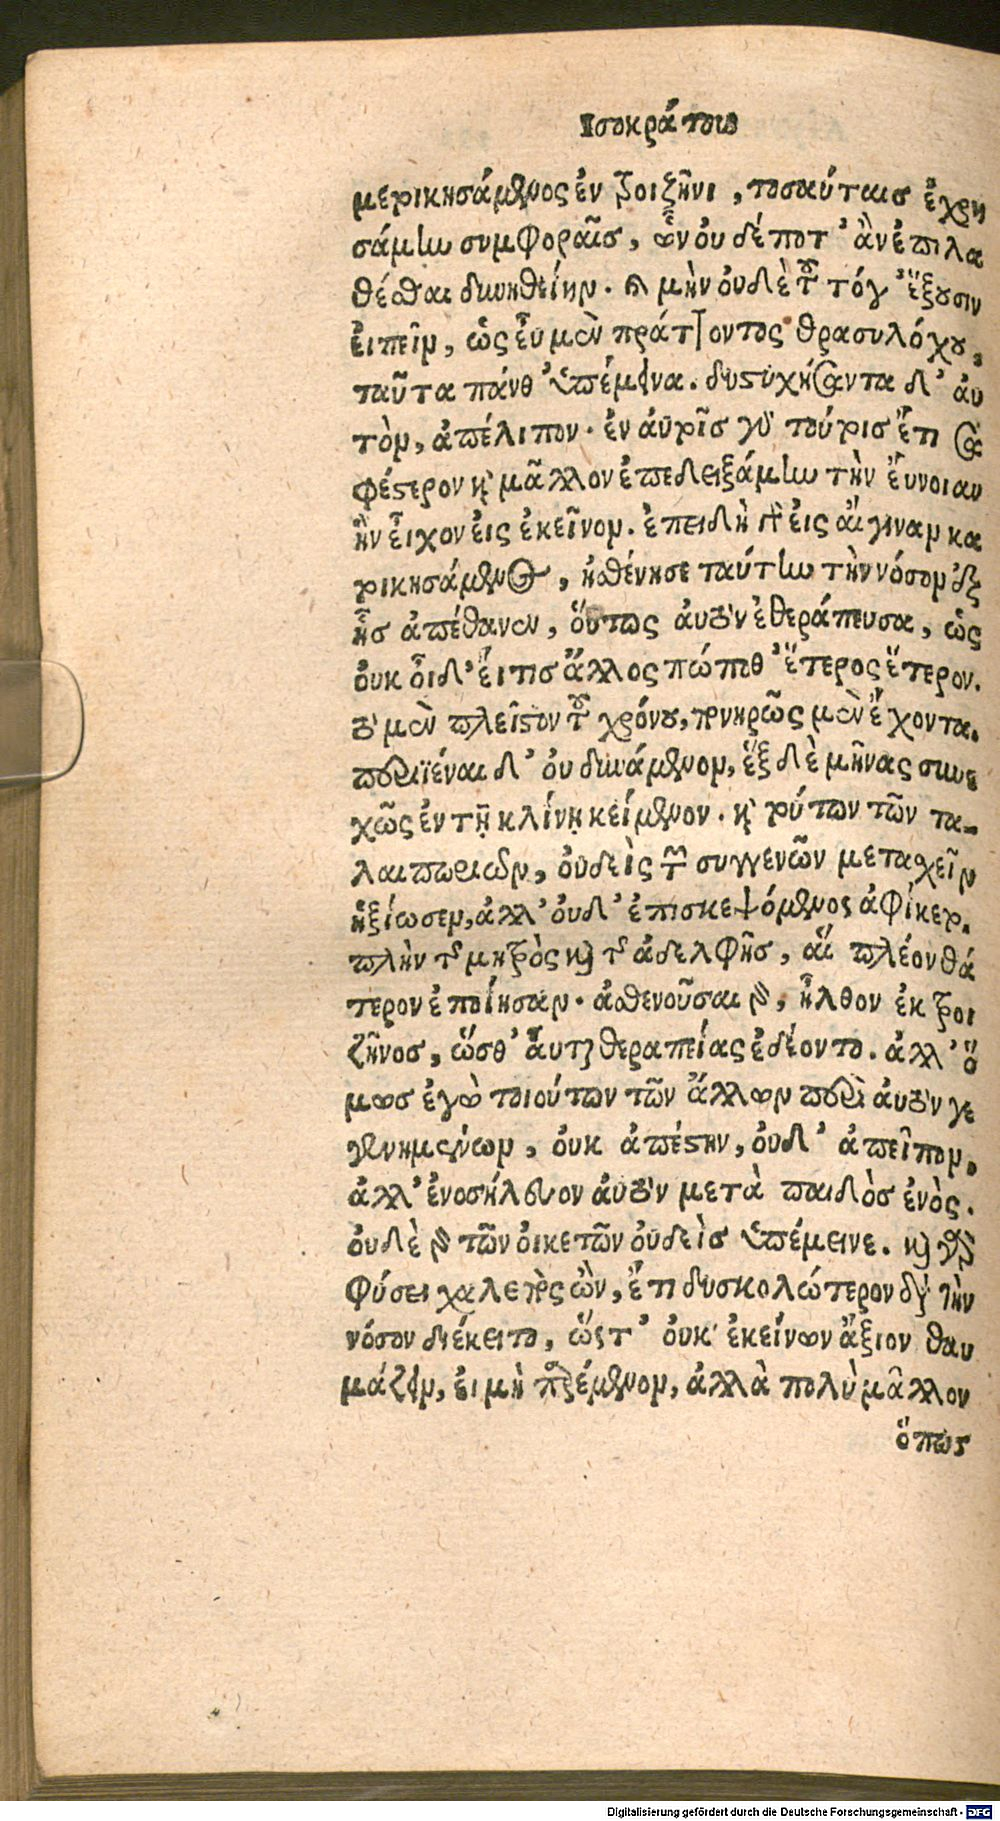 Ισοκράτους
μεγικησάμενος ἐν Τροιζῆνι, τοσαύταις ἐχρη
σάμην συμφοραῖς, ὧν οὐδέποτ' ἂν ἐπιλα
θέσθαι δυνηθείην. καὶ μὴν οὐδὲ τοῦτό γ' ἕξουσιν
εἰπεῖν, ὡς εὖ μὲν πράττοντος Θρασυλόχου,
ταῦτα πάνθ' ὑπέμεινα. δυστυχήσαντα δ' αὐ
τὸν, ἀπέλιπον. ἐν αὐτοῖς γὰρ τούτοις ἔτι σα
φέστερον καὶ μᾶλλον ἐπεδειξάμην τὴν εὔνοιαν
ἣν εἶχον εἰς ἐκεῖνον. ἐπειδὴ γὰρ εἰς αἴγιναν κα
τοικησάμενος, ἠσθένησε ταύτην τὴν νόσον ἐξ
ἧς ἀπέθανεν, οὕτως αὐτὸν ἐθεράπευσα, ὡς
οὐκ οἶδ' εἴ τις ἄλλος πώποθ' ἕτερος ἕτερον.
τὸν μὲν πλεῖστον τοῦ χρόνου, πονηρῶς μὲν ἔχοντα.
περιϊέναι δ' οὐ δυνάμενον, ἓξ δὲ μῆνας συνε
χῶς ἐν τῇ κλίνῃ κείμενον. καὶ τούτων τῶν τα-
λαιπωριῶν, οὐδεὶς τῶν συγγενῶν μετασχεῖν
ἠξίωσεν, ἀλλ' οὐδ' ἐπισκεψόμενος ἀφίκετο.
πλὴν τῆς μητρὸς καὶ τῆς ἀδελφῆς, αἳ πλέον θά
τερον ἐποίησαν. ἀσθενοῦσαι γὰρ, ἦλθον ἐκ Τροι
ζῆνος, ὥσθ' αὗται θεραπείας ἐδέοντο. ἀλλ' ὅ
μως ἐγὼ τοιούτων τῶν ἄλλων περὶ αὐτὸν γε
γενημένων, οὐκ ἀπέστην, οὐδ' ἀπεῖπον.
ἀλλ' ἐνοσήλευον αὐτὸν μετὰ παιδὸς ἑνός.
οὐδὲ γὰρ τῶν οἰκετῶν οὐδεὶς ὑπέμεινε. καὶ γὰρ
φύσει χαλεπὸς ὢν, ἔτι δυσκολώτερον διὰ τὴν
νόσον διέκειτο, ὥστ' οὐκ ἐκείνων ἄξιον θαυ
μάζειν, εἰ μὴ παρέμενον, ἀλλὰ πολὺ μᾶλλον
ὅπως
Digitalisierung gefördert durch die Deutsche Forschungsgemeinschaft - DFG